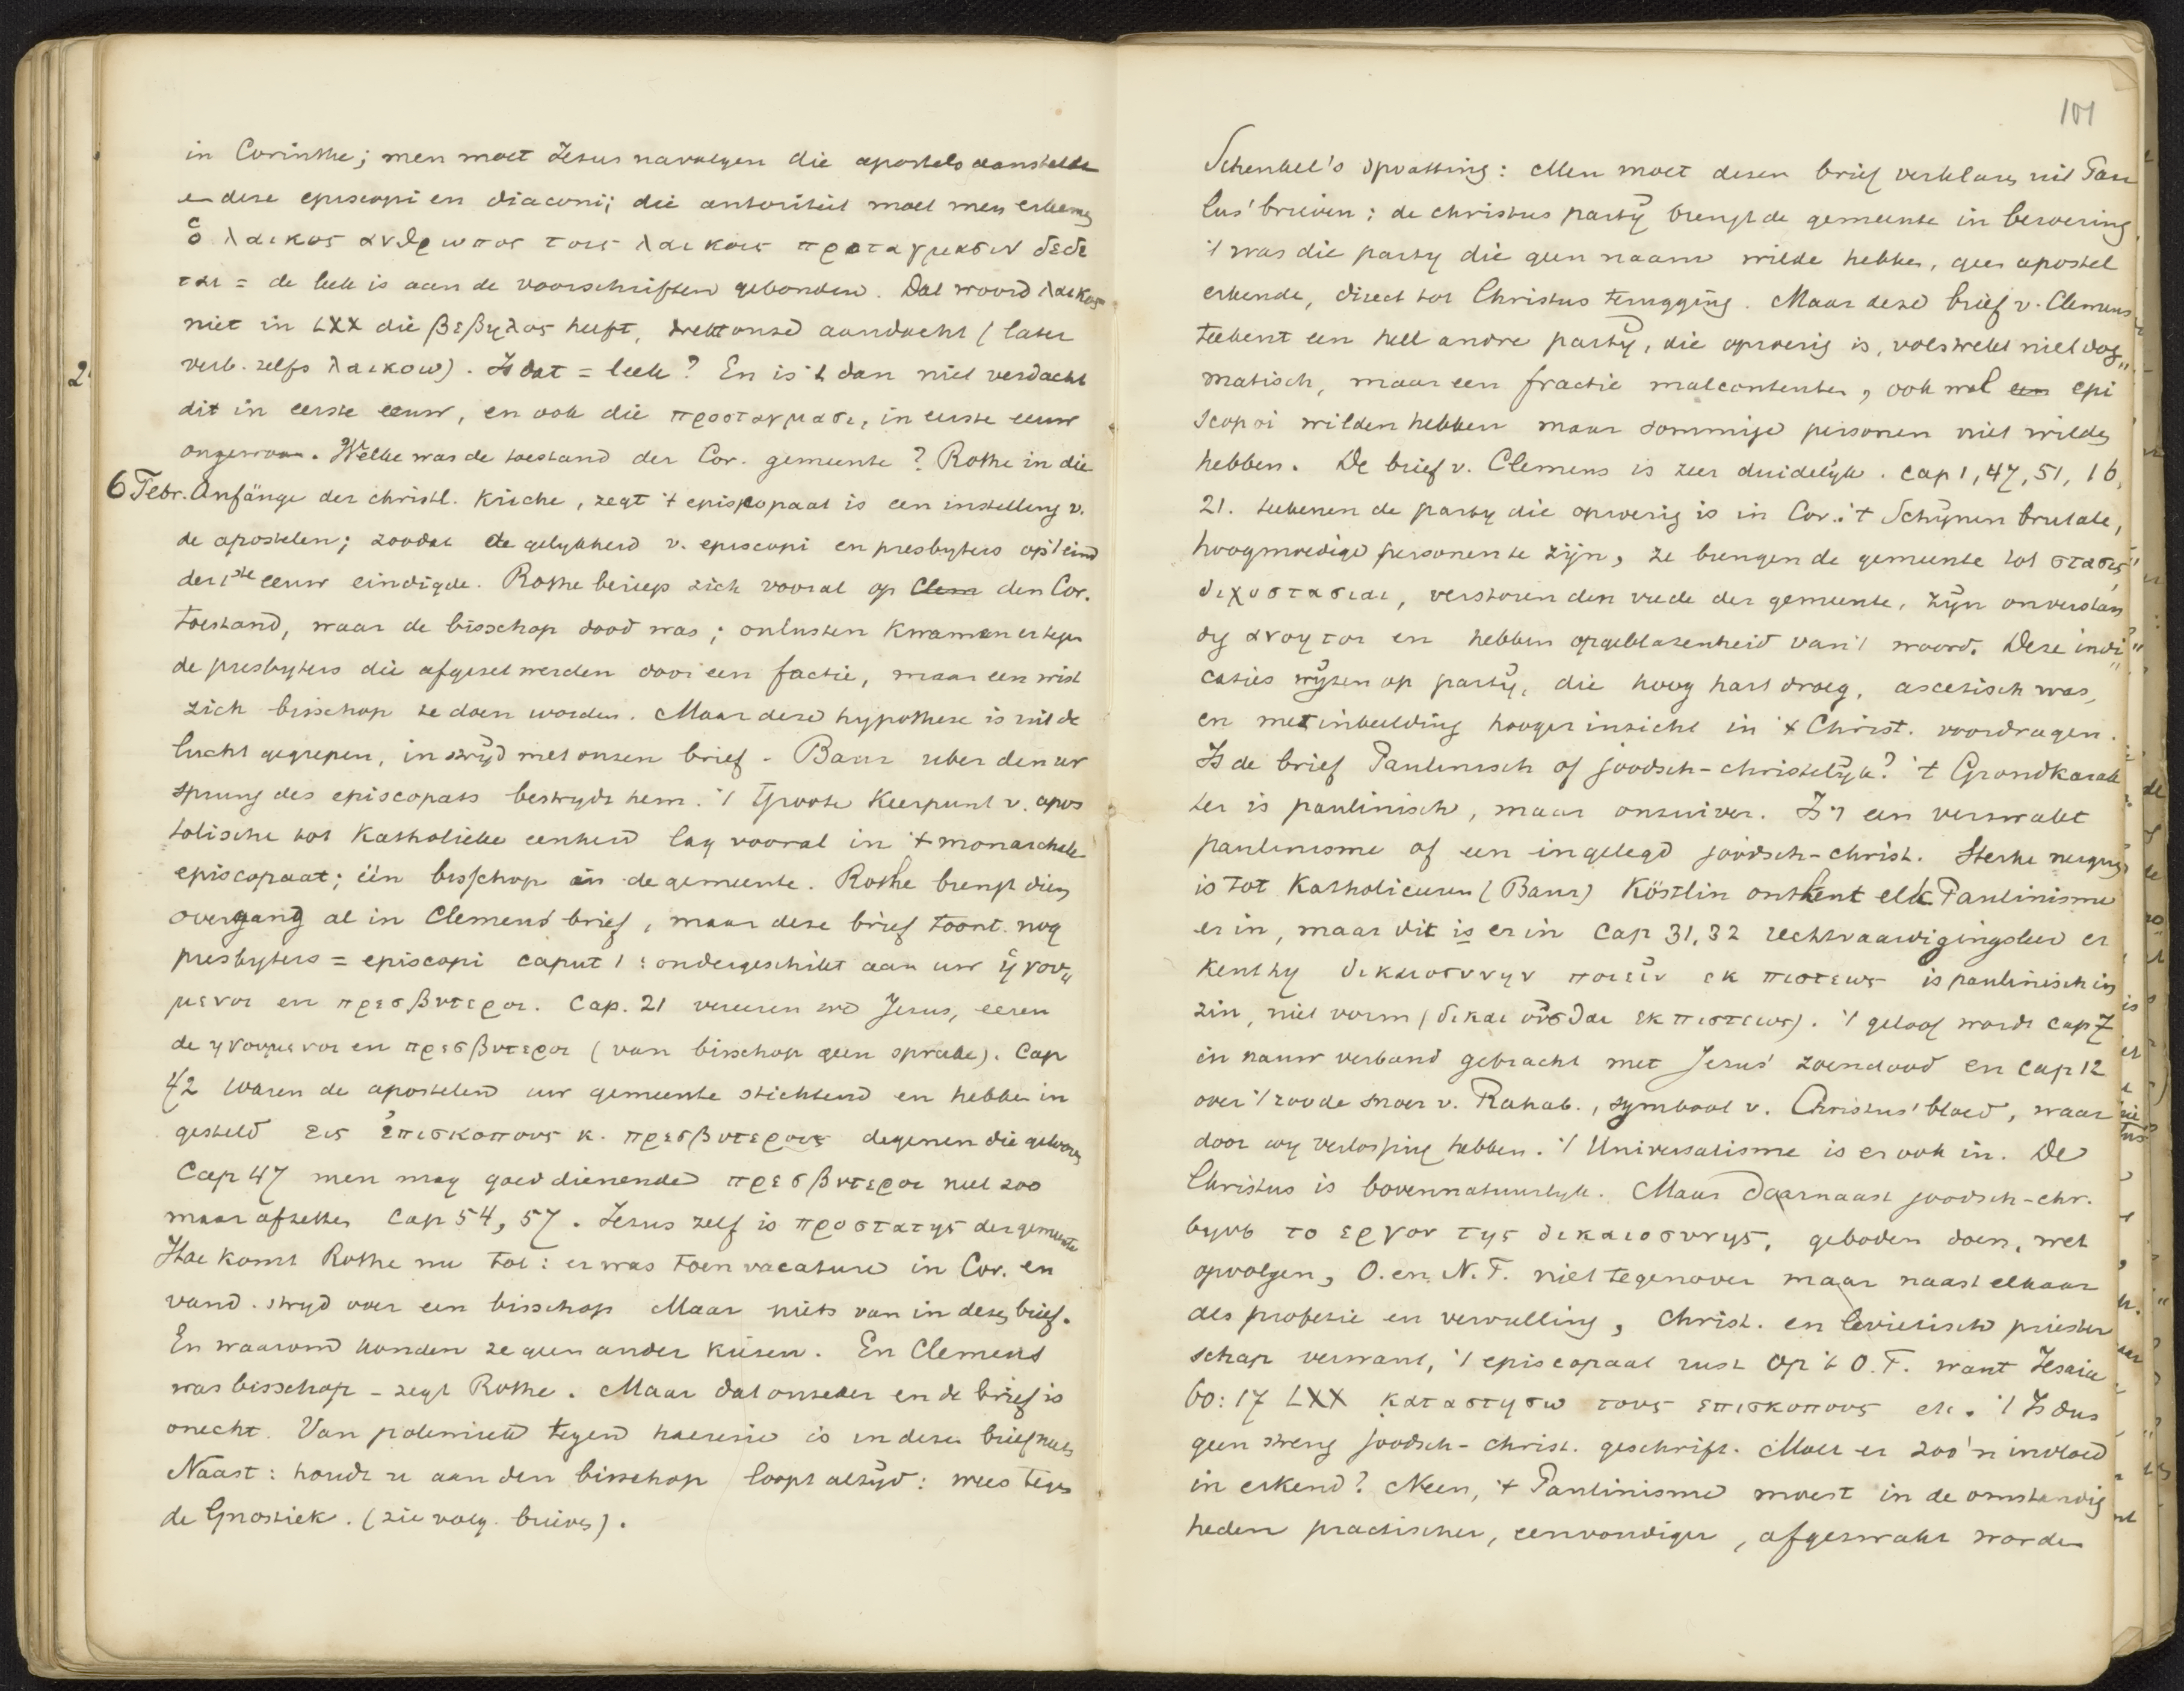 in Corinthe; men moet Jezus navolgen die apostels aanstelde
en deze episcopi en diaconi; die autoriteit moet men erkennen
ὁ λαικος ανθρωπος τοις λαικοις προταγμασιν δεδε
ται = de leek is aan de voorschriften gebonden. Dat woord λαικος
niet in LXX die βεβηλος heeft, trekt onze aandacht (later
verb. zelfs λαικοω). Is dat = leek? En is 't dan niet verdacht
dit in eerste eeuw, en ook die προσταγμασι, in eerste eeuw
ongewoon. Welke was de toestand der Cor. gemeente? Rothe in die
6 Febr. Anfänge der christl. Kirche, zegt 't episcopaat is een instelling v.
de apostelen; zoodat de gelykheid v. episcopi en presbyters op 't eind
der 1ste eeuw eindigde. Rothe beriep zich vooral op Clem den Cor.
toestand, waar de bisschop dood was; onlusten kwamen er tegen
de presbyters die afgezet werden door een factie, maar een wist
zich bisschop te doen worden. Maar deze hypothese is uit de
lucht gegrepen, in stryd met onzen brief. Baur uber den ur
sprung des episcopats bestrydt hem. 't Groote keerpunt v. apos
tolische tot Katholieke eenheid lag vooral in 't monarchale
episcopaat; één bisschop in de gemeente. Rothe brengt dien
overgang al in Clemens' brief, maar deze brief toont nog
presbyters = episcopi caput 1: ondergeschikt aan uw ἡγου„
μενοι en πρεσβυτεροι. Cap. 21 vereeren wij Jezus, eeren
de ηγουμενοι en πρεσβυτεροι (van bisschop geen sprake). Cap
42 waren de apostelen uw gemeente stichtend en hebben in
gesteld εις ἐπισκοπους κ. πρεσβυτερους degenen die gelooven
Cap 47 men mag goed dienende πρεσβυτεροι niet zoo
maar afzetten Cap 54, 57. Jezus zelf is προστατης der gemeente
Hoe komt Rothe nu tot: er was toen vacature in Cor. en
vand. stryd over een bisschop Maar niets van in dezen brief.
En waarom konden ze geen ander kiezen. En Clemens
was bisschop - zegt Rothe. Maar dat onzeker en de brief is
onecht. Van polemiek tegen haeresie is in dezen brief niets
Naast: houdt u aan den bisschop loopt altÿd: wees tegen
de Gnostiek. (zie volg. brieven).
2
101
Schenkel's opvatting: Men moet dezen brief verklaren uit Pau
lus' brieven: de christus partÿ brengt de gemeente in beroering
't was die party die geen naam wilde hebben, geen apostel
erkende, direct tot Christus terugging. Maar deze brief v. Clemens
teekent een heel andre partÿ, die oproerig is, volstrekt niet dog„
matisch, maar een fractie malcontenten, ook wel een epi
scopoi wilden hebben maar sommige personen niet wilden
hebben. De brief v. Clemens is zeer duidelÿk. cap 1, 47, 51, 16,
21. teekenen de party die oproerig is in Cor. 't Schÿnen brutale,
hoogmoedige personen te zÿn, ze brengen de gemeente tot στασις
διχοστασιαι, verstoren den vrede der gemeente, zÿn onverstan
dig ανοητοι en hebben opgeblazenheid van 't woord. Deze indi„
caties wÿzen op partÿ, die hoog hart droeg, ascetisch was,
en met inbeelding hooger inzicht in 't Christ. voordragen.
Is de brief Paulinisch of joodsch-christelÿk? 't Grondkarak
ter is paulinisch, maar onzuiver. Is 't een verzwakt
paulinisme of een ingelegd joodsch-christ. Sterke neiging
is tot Katholicisme (Baur) Köstlin ontkent elk Paulinisme
er in, maar dit is er in Cap 31, 32 rechtvaardigingsleer er
kent hy δικαιοσυνην ποιεῖν εκ πιστεως is paulinisch in
zin, niet vorm (δικαιοῦσθαι εκ πιστεως). 't geloof wordt cap 7
in nauw verband gebracht met Jezus' zoendood en cap 12
over 't roode snoer v. Rahab., symbool v. Christus' bloed, waar
door wy verlossing hebben. 't Universalisme is er ook in. De
Christus is bovennatuurlyk. Maar daarnaast joodsch-chr.
byvb το εργον της δικαιοσυνης, geboden doen, wet
opvolgen, O. en N.T. niet tegenover maar naast elkaar
als profetie en vervulling, Christ. en levietisch priester
schap verwant, 't episcopaat rust op 't O.T. want Jesaia
60: 17 LXX καταστησω τους επισκοπους etc. 't Is dus
geen streng joodsch-christ. geschrift. Moet er zoo'n invloed
in erkend? Neen, 't Paulinisme moest in de omstandig
heden practischer, eenvoudiger, afgezwakt worden